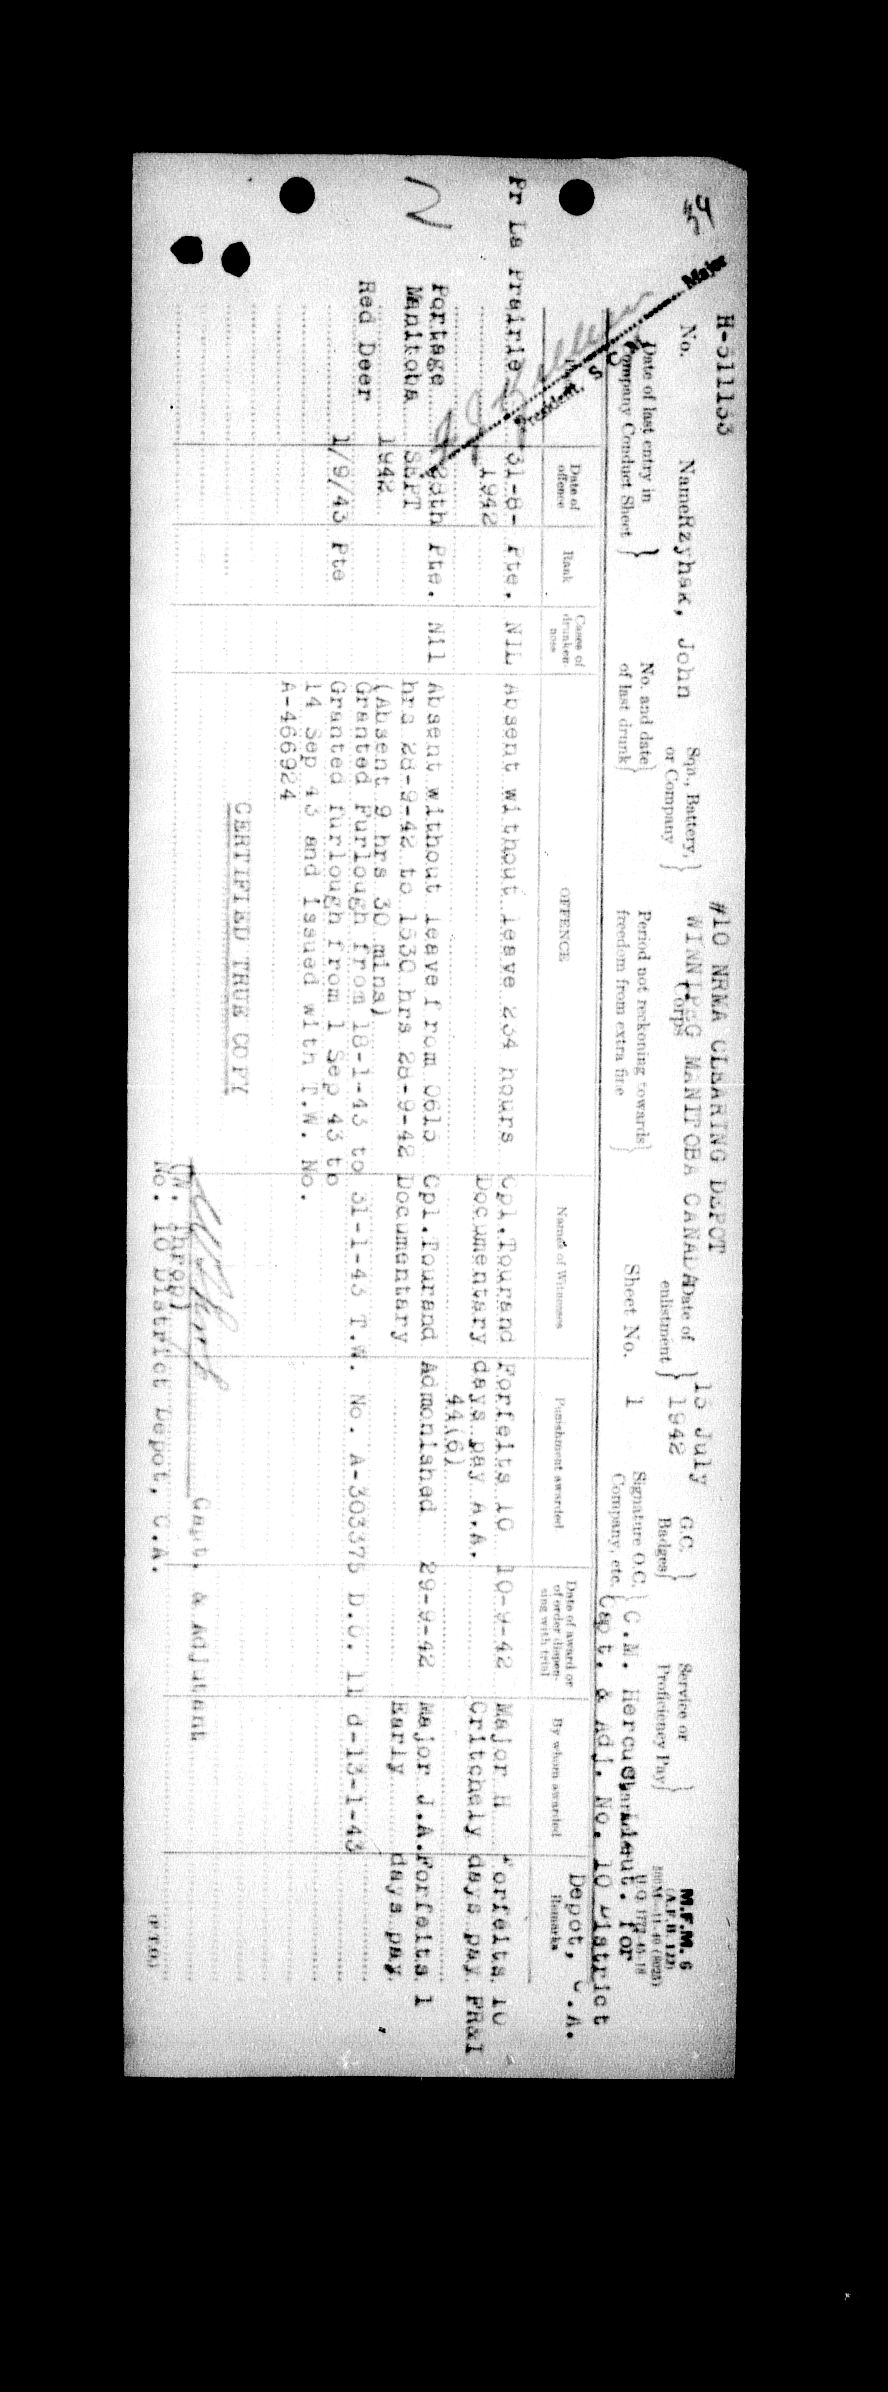 H-511133
#10 NRMA CLEARING DEPOT
15 July
No. Name Rzyhak, John Sqn., Battery, or Company WINNIPEG MANITOBA CANADA Corps Date of enlistment 1942 G.C. Badges Service or Proficiency Pay M.F.M. 6
Major
Date of last entry in Company Conduct Sheet No. and date of last drunk Period not reckoning towards freedom from extra fine Sheet No. 1 Signature O.C. Company, etc. C.M. Lieut. for
Capt. & Adj. No. 10 District
Depot, C.A.
President, S.C.M.
Date of offence Rank Cases of drunkenness OFFENCE Names of Witnesses Punishment awarded Date of award or of order dispensing with trial By whom awarded Remarks
Pr La Prairie 31-8- Pte. NIL Absent without leave 234 hours Cpl.Tourand Forfeits 10 10-9-42 Major H Forfeits 10
1942 Documentary days pay A.A. Critchely days pay FR&I
44(6)
Portage 28th Pte. Nil Absent without leave from 0615 Cpl.Tourand Admonished 29-9-42 Major J.A. Forfeits 1
Manitoba SEPT hrs 28-9-42 to 1530 hrs 28-9-42 Documentary Early days pay
1942 (Absent 9 hrs 30 mins)
Red Deer Granted Furlough from 18-1-43 to 31-1-43 T.W. No. A-303375 D.O. 11 d-13-1-43
1/9/43 Pte Granted furlough from 1 Sep 43 to
14 Sep 43 and issued with T.W. No.
A-466924
CERTIFIED TRUE COPY
Capt. & Adjutant
No. 10 District Depot, C.A.
(P.T.O.)